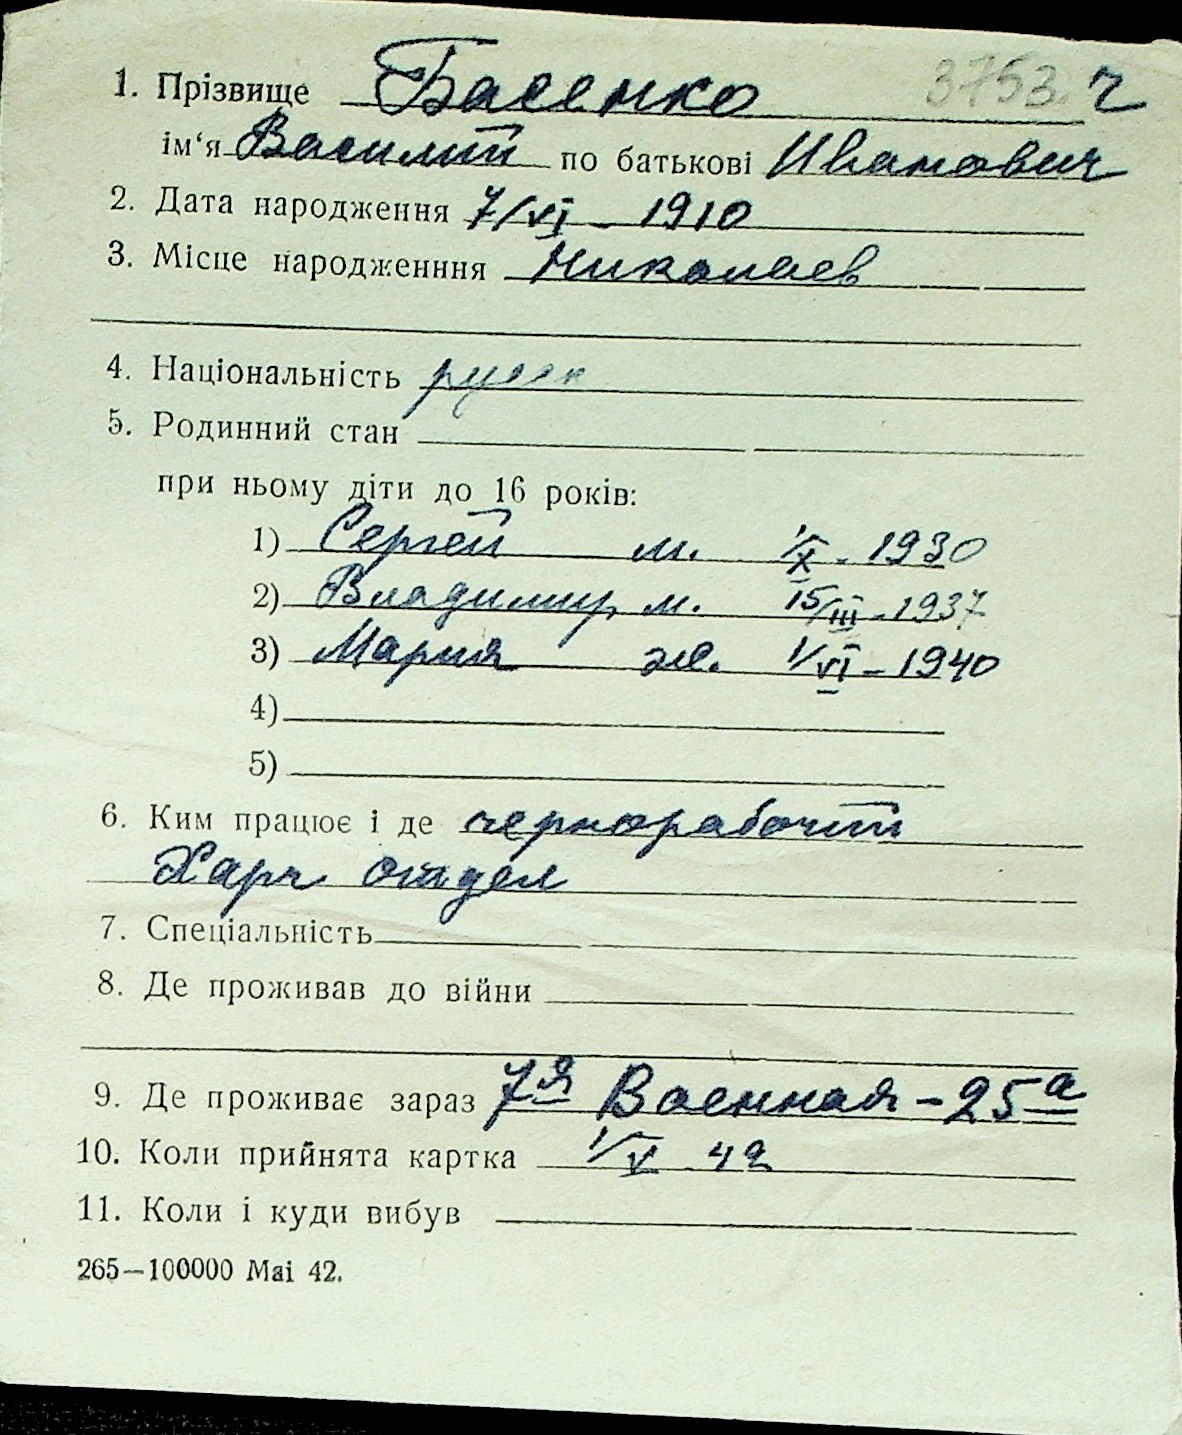 1. Прізвище Басенко 3753. ч
ім‘я Василий по батькові Иванович
2. Дата народження 7/VI – 1910
3. Місце народженння Николаев
4. Національність русск
5. Родинний стан
при ньому діти до 16 років:
1) Сергей м. 1/X - 1930
2) Владимир м. 15/III - 1937
3) Мария ж. 1/VI - 1940
4)
5)
6. Ким працює і де чернорабочий
Харч отдел
7. Спеціальність
8. Де проживав до війни
9. Де проживає зараз 7я Военная - 25а
10. Коли прийнята картка 1/V 42
11. Коли і куди вибув
265—100000 Mai 42.